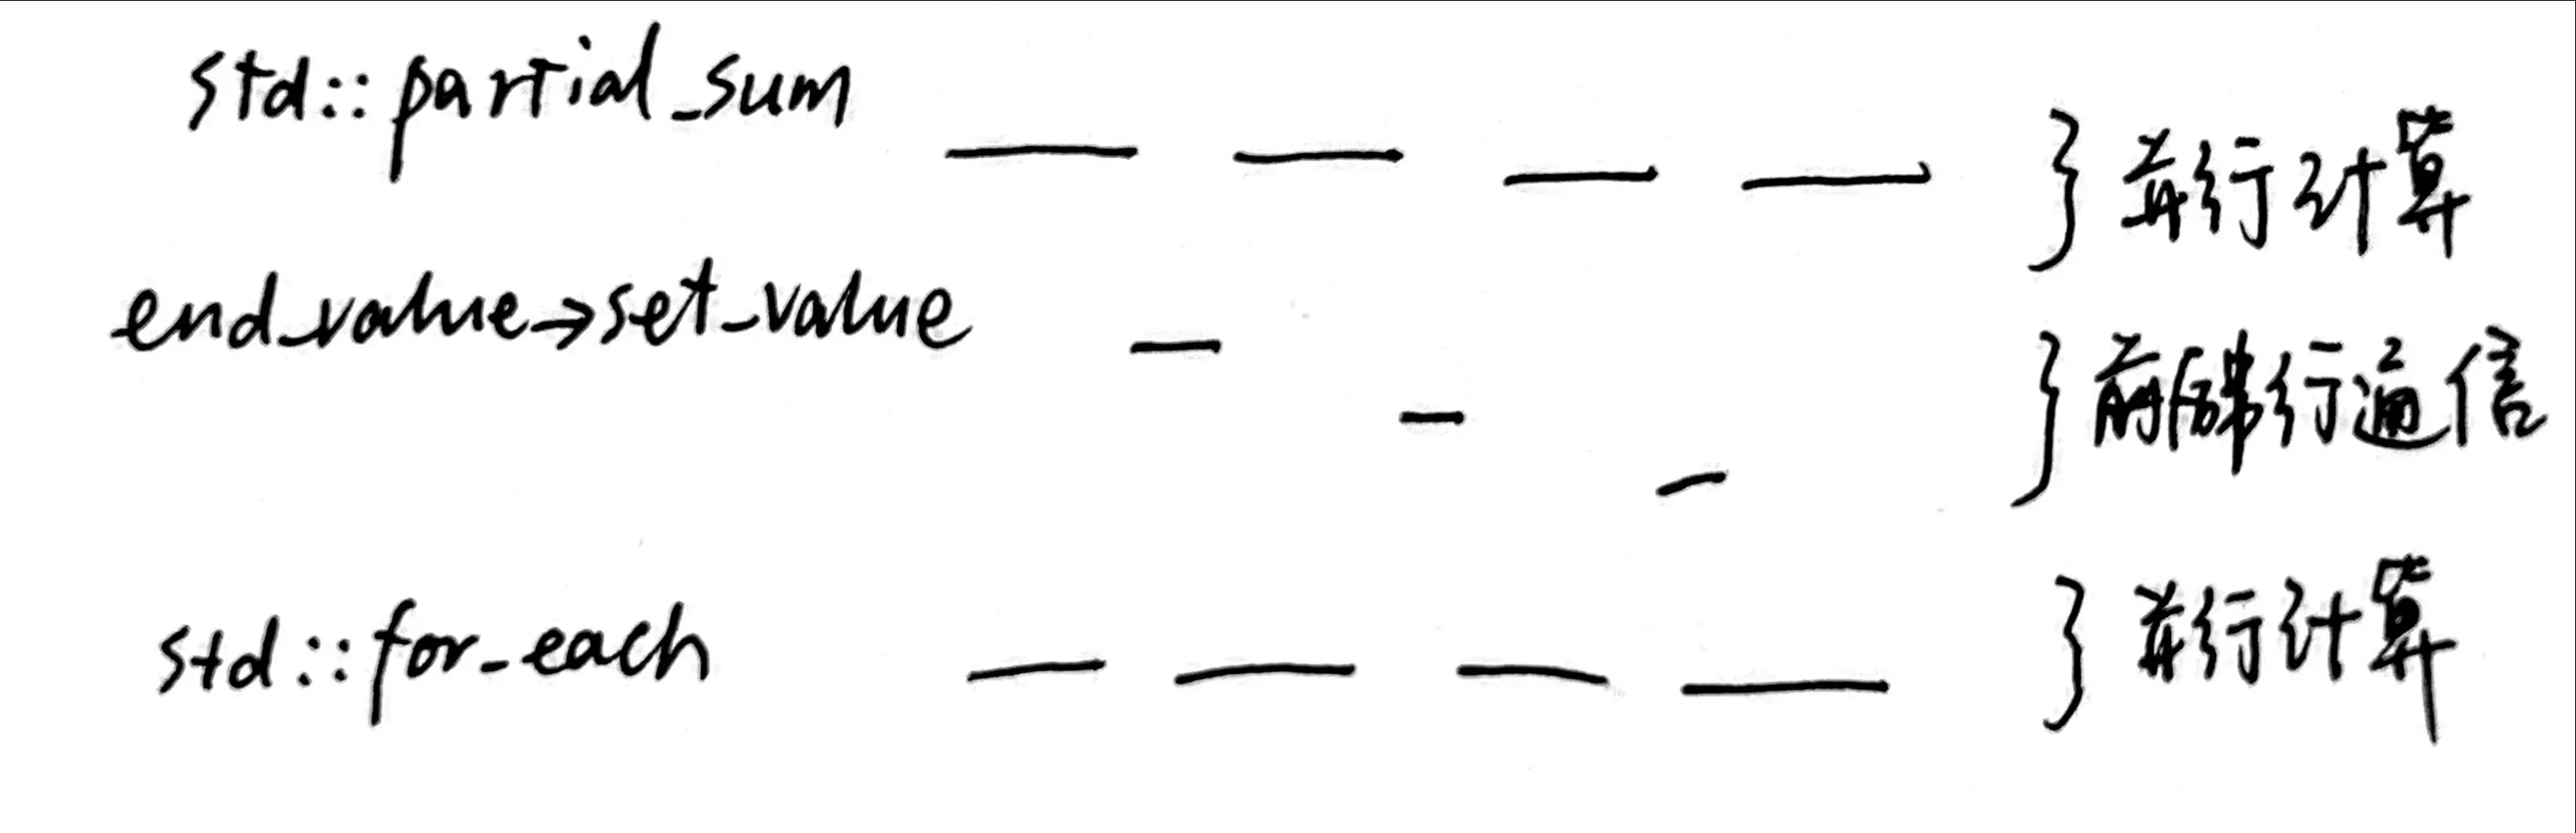 std::partial_sum
} 并行计算
end_value→set_value
} 前后串行通信
std::for_each
} 并行计算